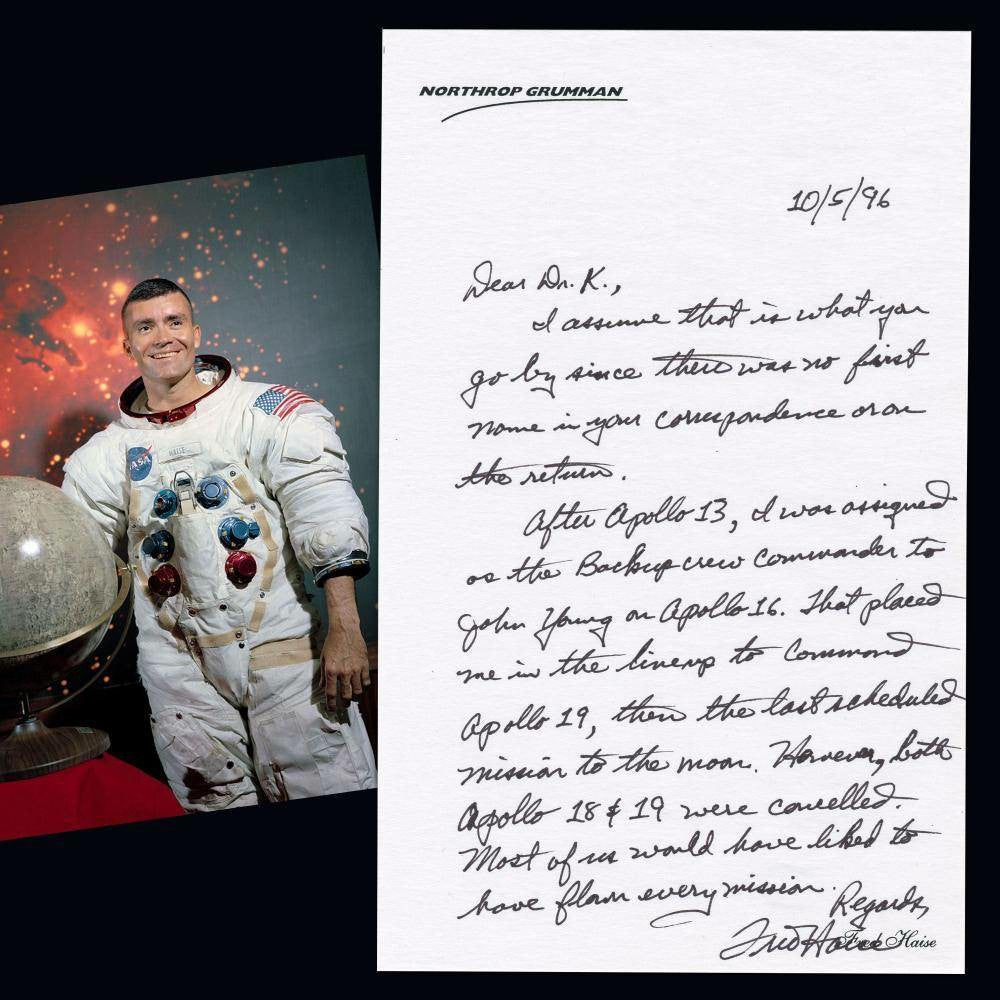 NORTHROP GRUMMAN
10/5/96
Dear Dr. K.,
I assume that is what you
go by since there was no first
name in your correspondence or on
the return.
After Apollo 13, I was assigned
as the Backup crew Commander to
John Young on Apollo 16. That placed
me in the lineup to Command
Apollo 19, then the last scheduled
mission to the moon. However, both
Apollo 18 & 19 were cancelled.
Most of us would have liked to
have flown every mission.
Regards,
Fred Haise
Fred Haise
HAISE
NASA